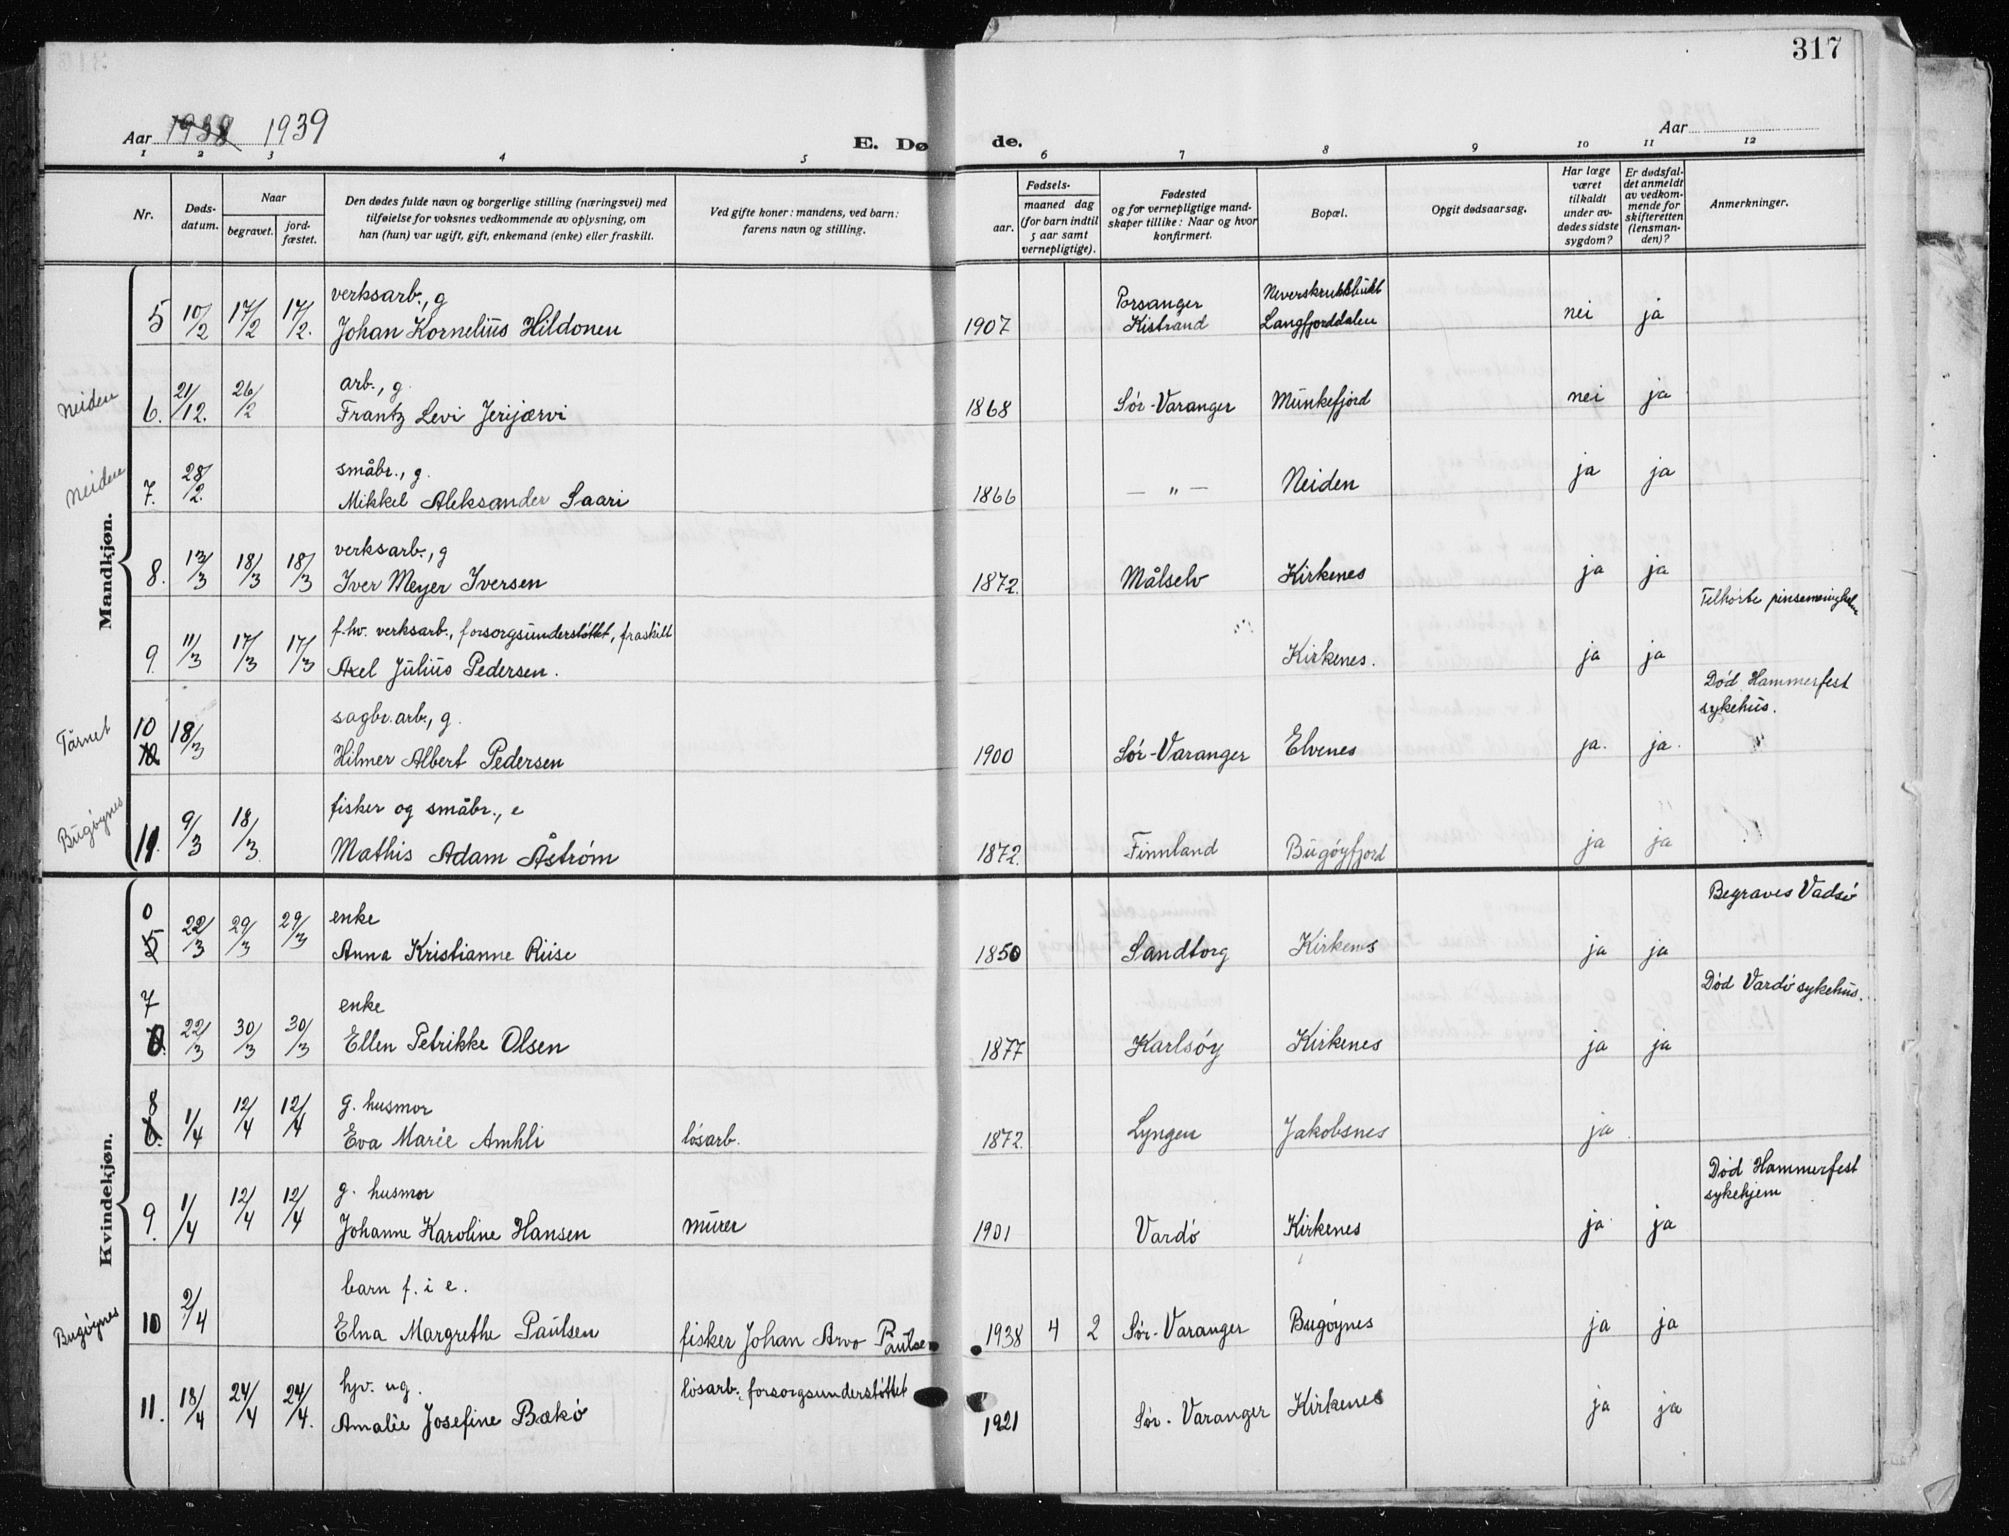 317
Aar 1938 1939
E. Døde.
Aar
1 2 3 4 5 6 7 8 9 10 11 12
Nr.
Døds-
datum.
Naar
begravet.
jord-
fæstet.
Den dødes fulde navn og borgerlige stilling (næringsvei) med
tilføielse for voksnes vedkommende av oplysning, om
han (hun) var ugift, gift, enkemand (enke) eller fraskilt.
Ved gifte koner: mandens, ved barn:
farens navn og stilling.
Fødsels-
aar.
maaned dag
(for barn indtil
5 aar samt
vernepligtige).
Fødested
og for vernepligtige mand-
skaper tillike: Naar og hvor
konfirmert.
Bopæl.
Opgit dødsaarsag.
Har læge
været
tilkaldt
under av-
dødes sidste
sygdom?
Er dødsfal-
det anmeldt
av vedkom-
mende for
skifteretten
(lensman-
den)?
Anmerkninger.
Mandkjøn.
verksarb., g Porsanger Neverskrukkbukt
5 10/2 17/2 17/2. Johan Kornelius Hildonen 1907 Kistrand Langfjorddalen nei ja
arb., g.
Neiden 6. 21/12. 26/2 Frantz Levi Jerijærvi 1868 Sór-Varanger Munkefjord nei ja
småbr., g.
Neiden 7. 28/2. Mikkel Aleksander Saari 1866 — " — Neiden ja ja
verksarb., g
8. 13/3 18/3 18/3 Iver Meyer Iversen 1872. Målselv Kirkenes ja ja
f.hv. verksarb., forsorgsunderstöttet, fraskilt Tilhörte pinsemenigheten
9. 11/3 17/3 17/3 Axel Julius Pedersen. Kirkenes. ja ja
sagbr.arb., g. Död Hammerfest
sykehus.
Tårnet 10 18/3 Hilmer Albert Pedersen 1900 Sór-Varanger Elvenes ja. ja.
fisker og småbr., e
Bugöynes 11. 9/3 18/3. Mathis Adam Åström 1872. Finnland Bugöyfjord ja ja
Kvindekjøn.
enke Begraves Vadsö
5 22/3 29/3 29/3 Anna Kristianne Riise 1850 Sandtorg Kirkenes ja ja
7 enke Död Vardö sykehus.
22/3 30/3 30/3 Ellen Petrikke Olsen 1877 Karlsöy Kirkenes ja ja
8 g. husmor
6. 1/4 12/4 12/4 Eva Marie Amhli lösarb. 1872. Lyngen Jakobsnes ja
g. husmor Död Hammerfest
sykehjem
9. 1/4 12/4 12/4 Johanne Karoline Hansen murer 1901 Vardö Kirkenes ja ja
barn f. i e.
Bugöynes 10 2/4 Elna Margrethe Paulsen fisker Johan Arvo Paulsen 1938 4 2 Sör-Varanger Bugöynes ja ja
hjv. ug. lösarb., forsorgsunderstöttet
11. 18/4 24/4 24/4. Amalie Josefine Bækö 1921 Sör-Varanger Kirkenes ja ja